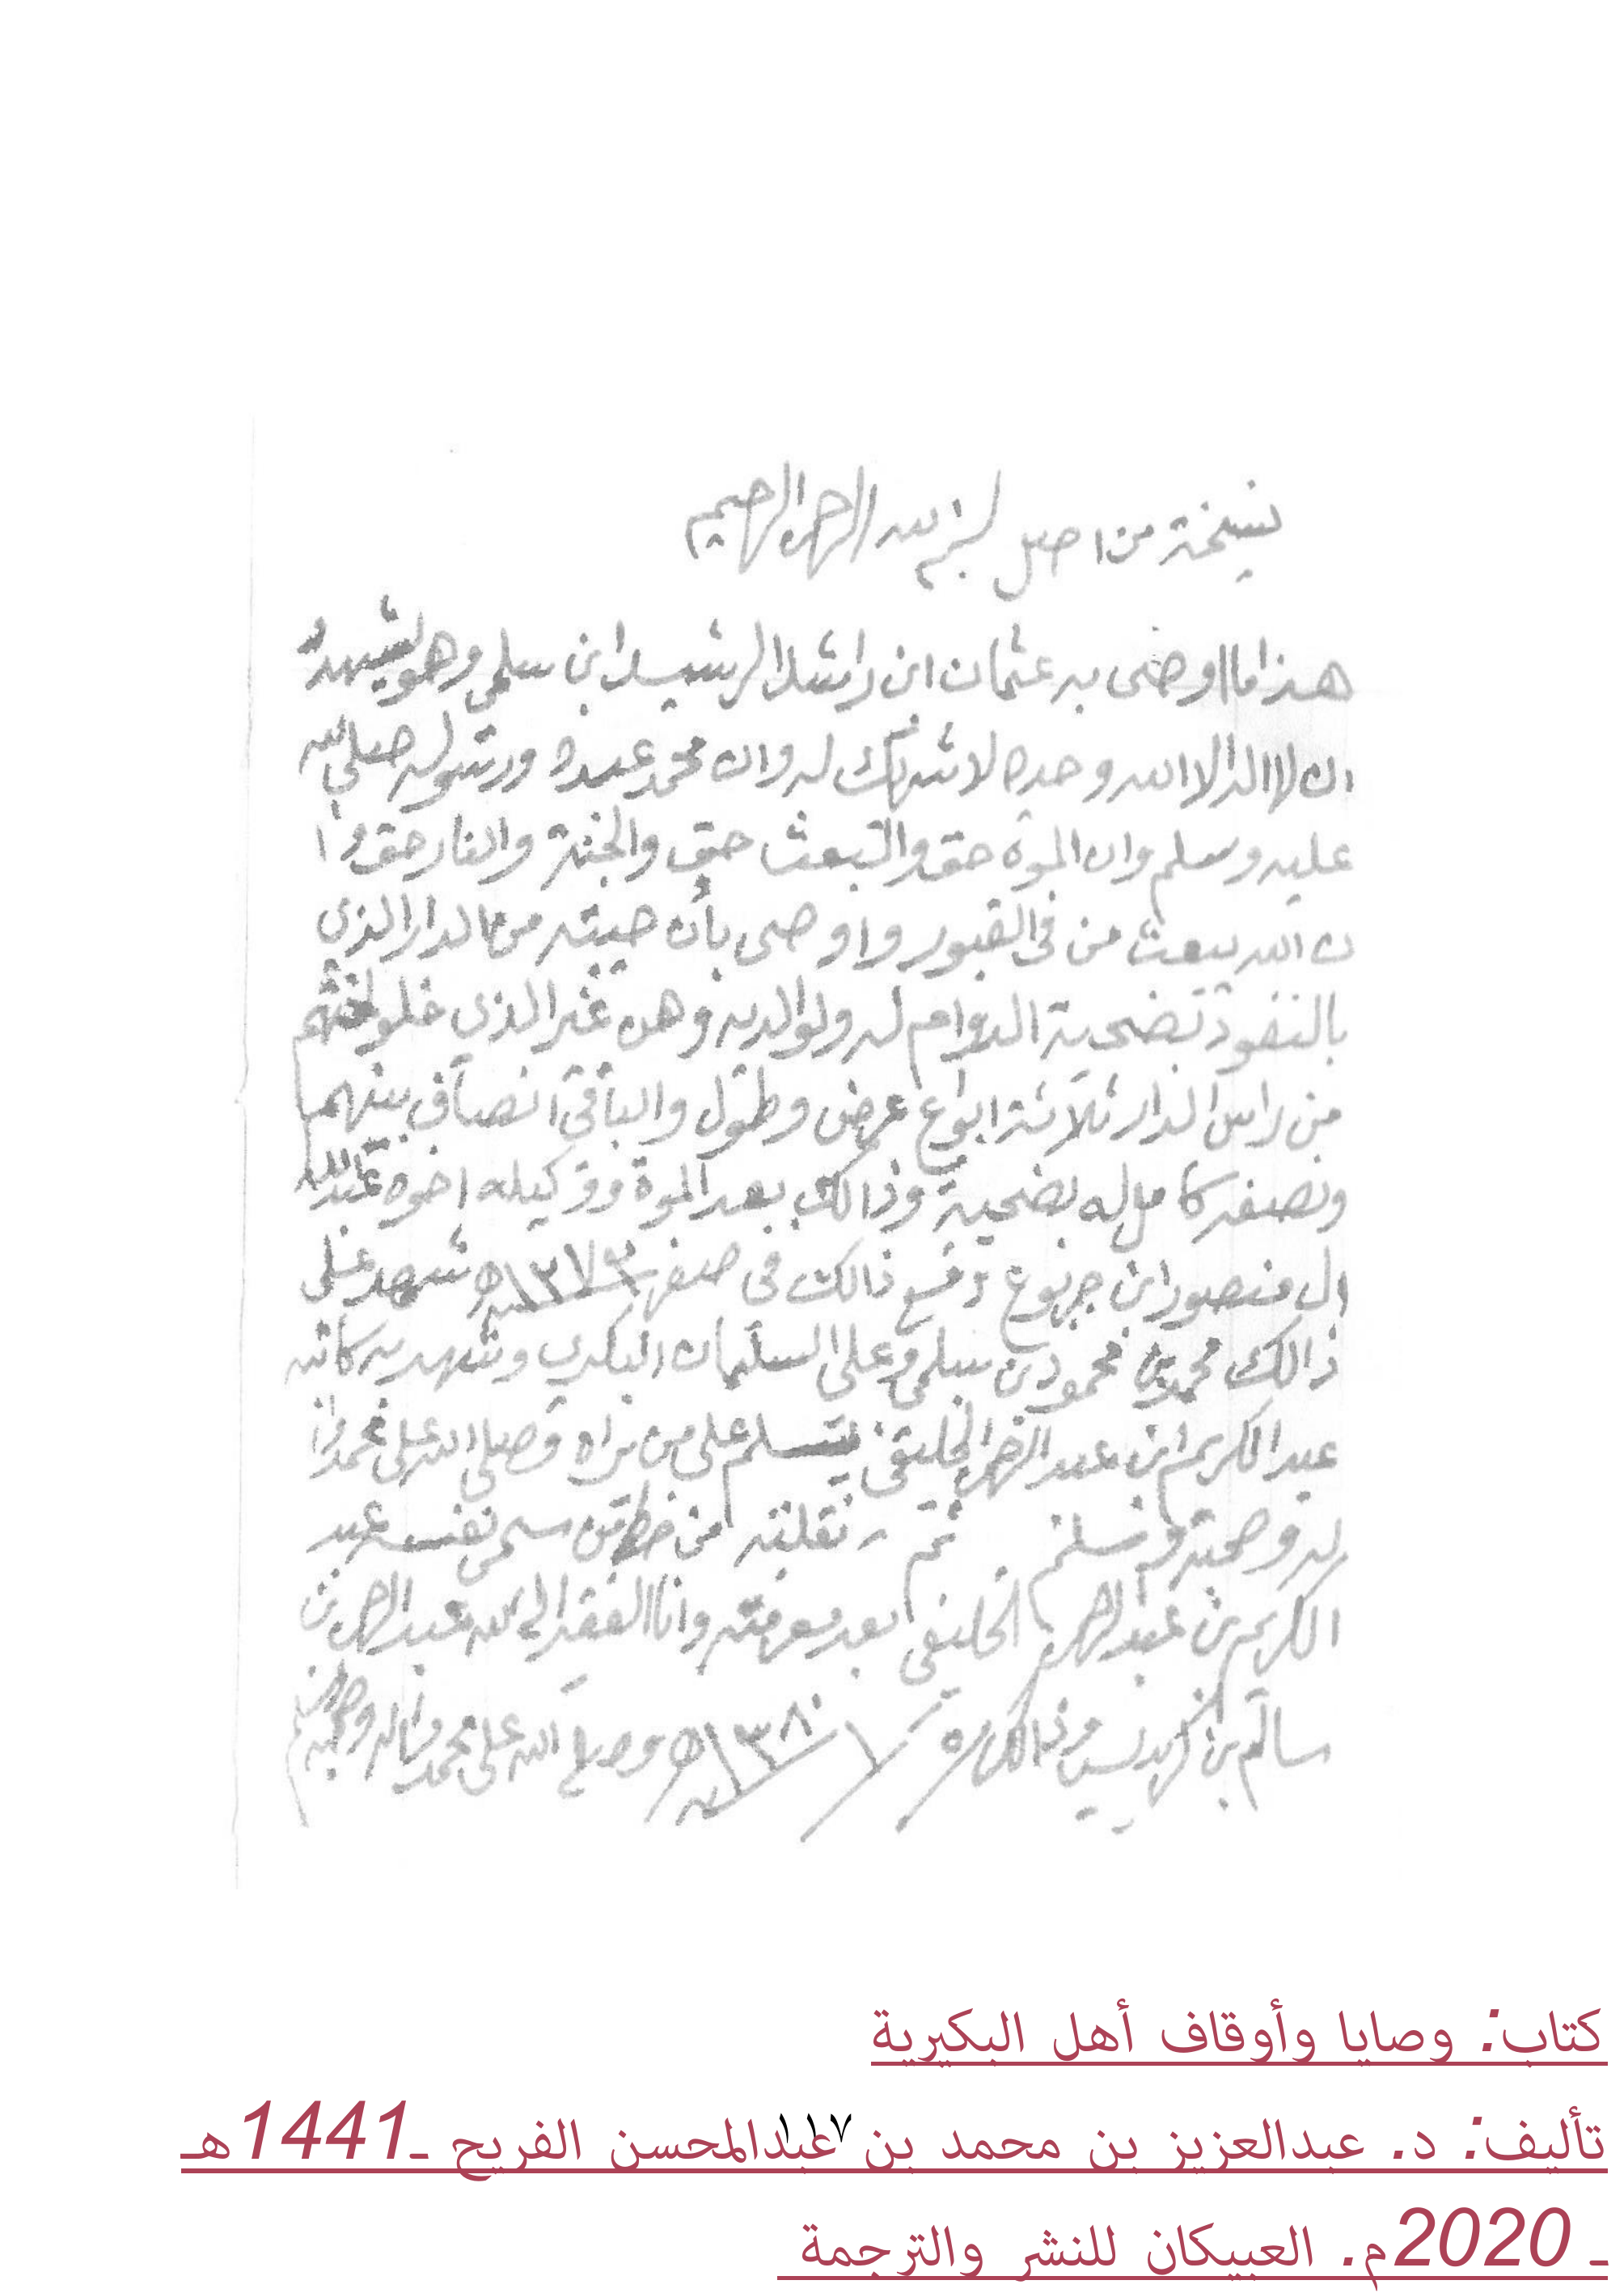 نسخة من اصل بسم الله الرحمن الرحيم
هذا ما اوصى به عثمان ابن راشد الرشيد ابن سلمى وهو يشهد
ان لا اله الا الله وحده لا شريك له وان محمد عبده ورسوله صلى الله
عليه وسلم وان الموة حق والبعث حق والجنة والنار حق وا
ن الله يبعث من في القبور واوصى بأن صيبته من الدار الذي
بالنفود تضحية الدوام له ولوالديه وهن غير الذي
من راس الدار ثلاثة ابواع عرض وطول والباقي انصاف بينهم
ونصفه كامل له بضحية وذالك بعد الموة ووكيله اخوه عبدالله
ال منصور ابن جربوع وقع ذالك في صفر سنة ١٣٧٣ه شهد على
ذالك محمد بن محمود بن سلمى وعلى السلمان البكري وشهد به كاتبه
عبد الكريم ابن عبد الرحمن الخليفي يسلم على من يراه وصلى الله على محمد وا
له وصحبه وسلم ثم نقلته من خط من سمى نفسه عبد
الكريم بن عبد الرحمن الخليفي بعد معرفته وانا الفقير الى الله عبد الرحمن بن
سالم بن كريديس وذالك ٥ / ١ / سنة ١٣٨٠ه وصلى الله على محمد واله وصحبه وسلم
كتاب: وصايا وأوقاف أهل البكيرية
تأليف: د. عبدالعزيز بن محمد بن عبدالمحسن الفريح ـ1441هـ
ـ 2020م. العبيكان للنشر والترجمة
١١٧